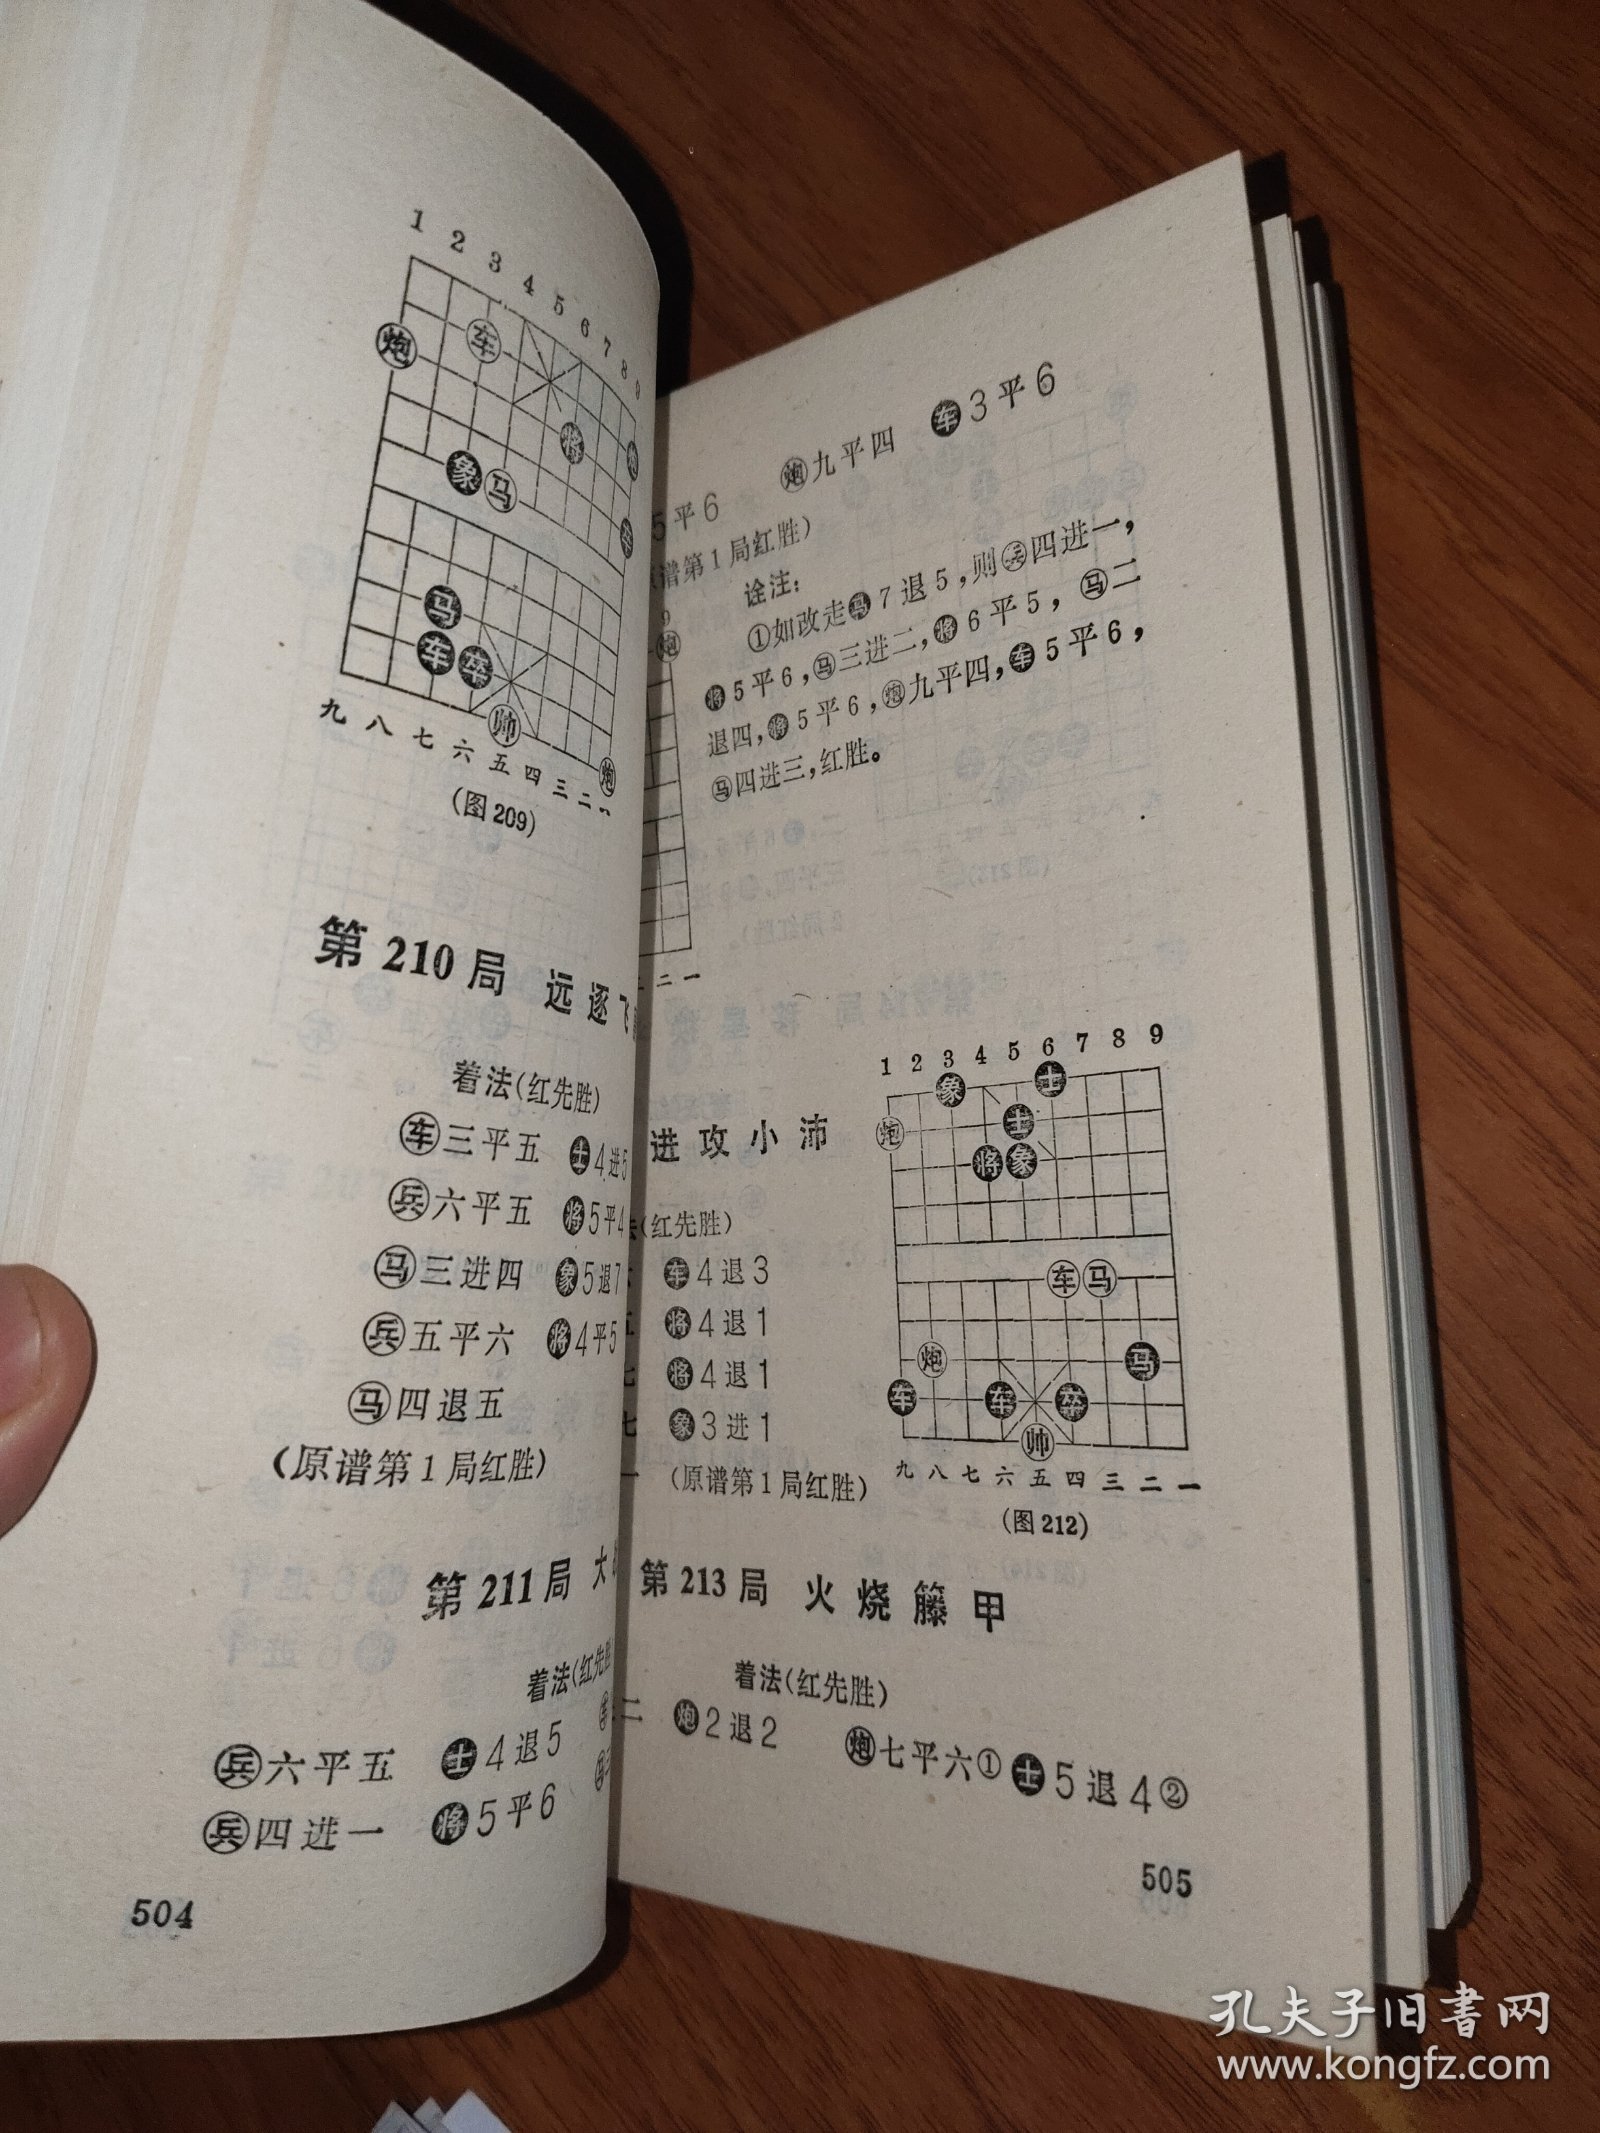 1 2 3 4 5 6 7 8 9
炮 车
将
象 马
马
车 卒
帅
炮
九 八 七 六 五 四 三 二 一
(图 209)
第 210 局 远 逐 飞
着法(红先胜)
车三平五 士4进5
兵六平五 将5平4
马三进四 象5退7
兵五平六 将4平5
马四退五
(原谱第1局红胜)
第 211 局 大
着法(红先胜
兵六平五 士4退5
兵四进一 将5平6
504
炮九平四 车3平6
5平6
谱第1局红胜)
诠注:
①如改走马7退5,则兵四进一,
将5平6,马三进二,将6平5,马二
退四,将5平6,炮九平四,车5平6,
马四进三,红胜。
9
炮
二 一
进 攻 小 沛
(红先胜)
车4退3
五 将4退1
七 将4退1
七 象3进1
一 (原谱第1局红胜)
1 2 3 4 5 6 7 8 9
象 士
炮 士
将 象
车 马
炮 马
车 车 卒
帅
九 八 七 六 五 四 三 二 一
(图 212)
第 213 局 火 烧 籐 甲
着法(红先胜)
二 炮2退2 炮七平六① 士5退4②
505
孔夫子旧书网
www.kongfz.com